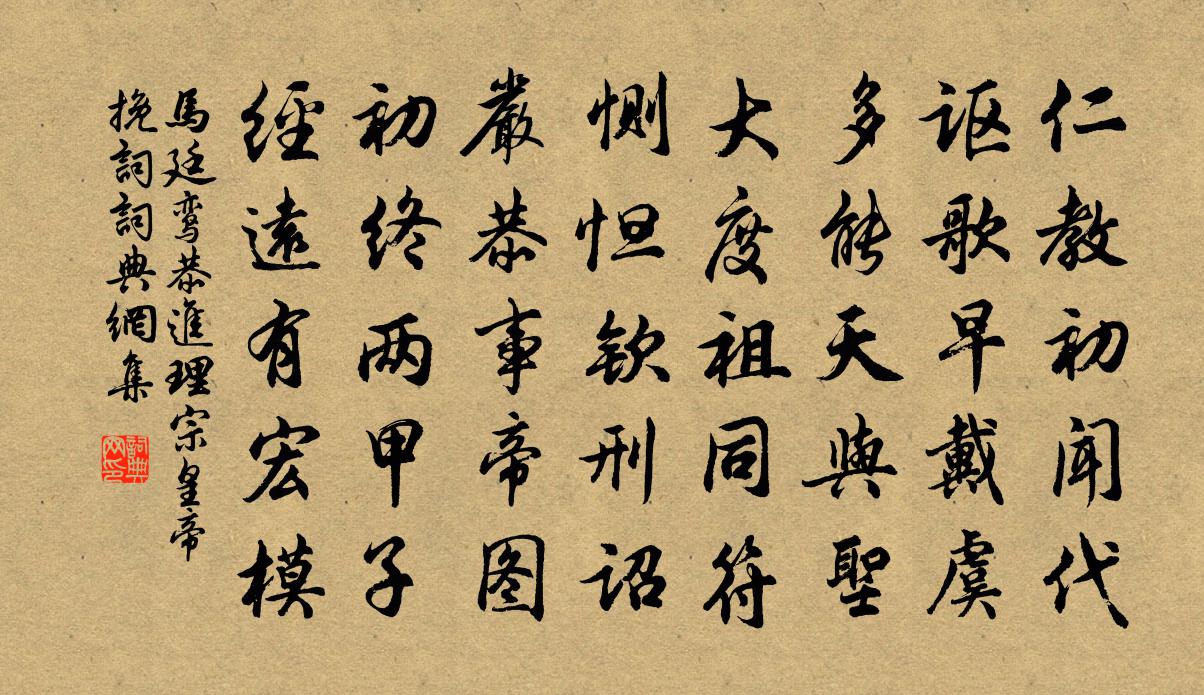 仁教初闻代
讴歌早戴虞
多能天與聖
大度祖同符
恻怛钦刑诏
嚴恭事帝图
初终两甲子
經遠有宏模
馬廷鸾恭進理宗皇帝
挽詞詞典網集
詞典
网印